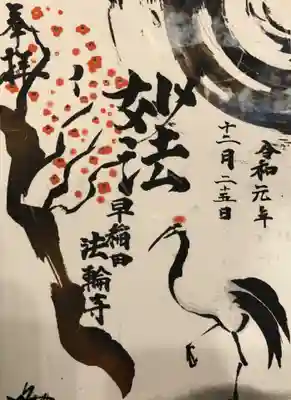 令和元年
十二月二五日
妙法
早稲田
法輪寺
奉拝